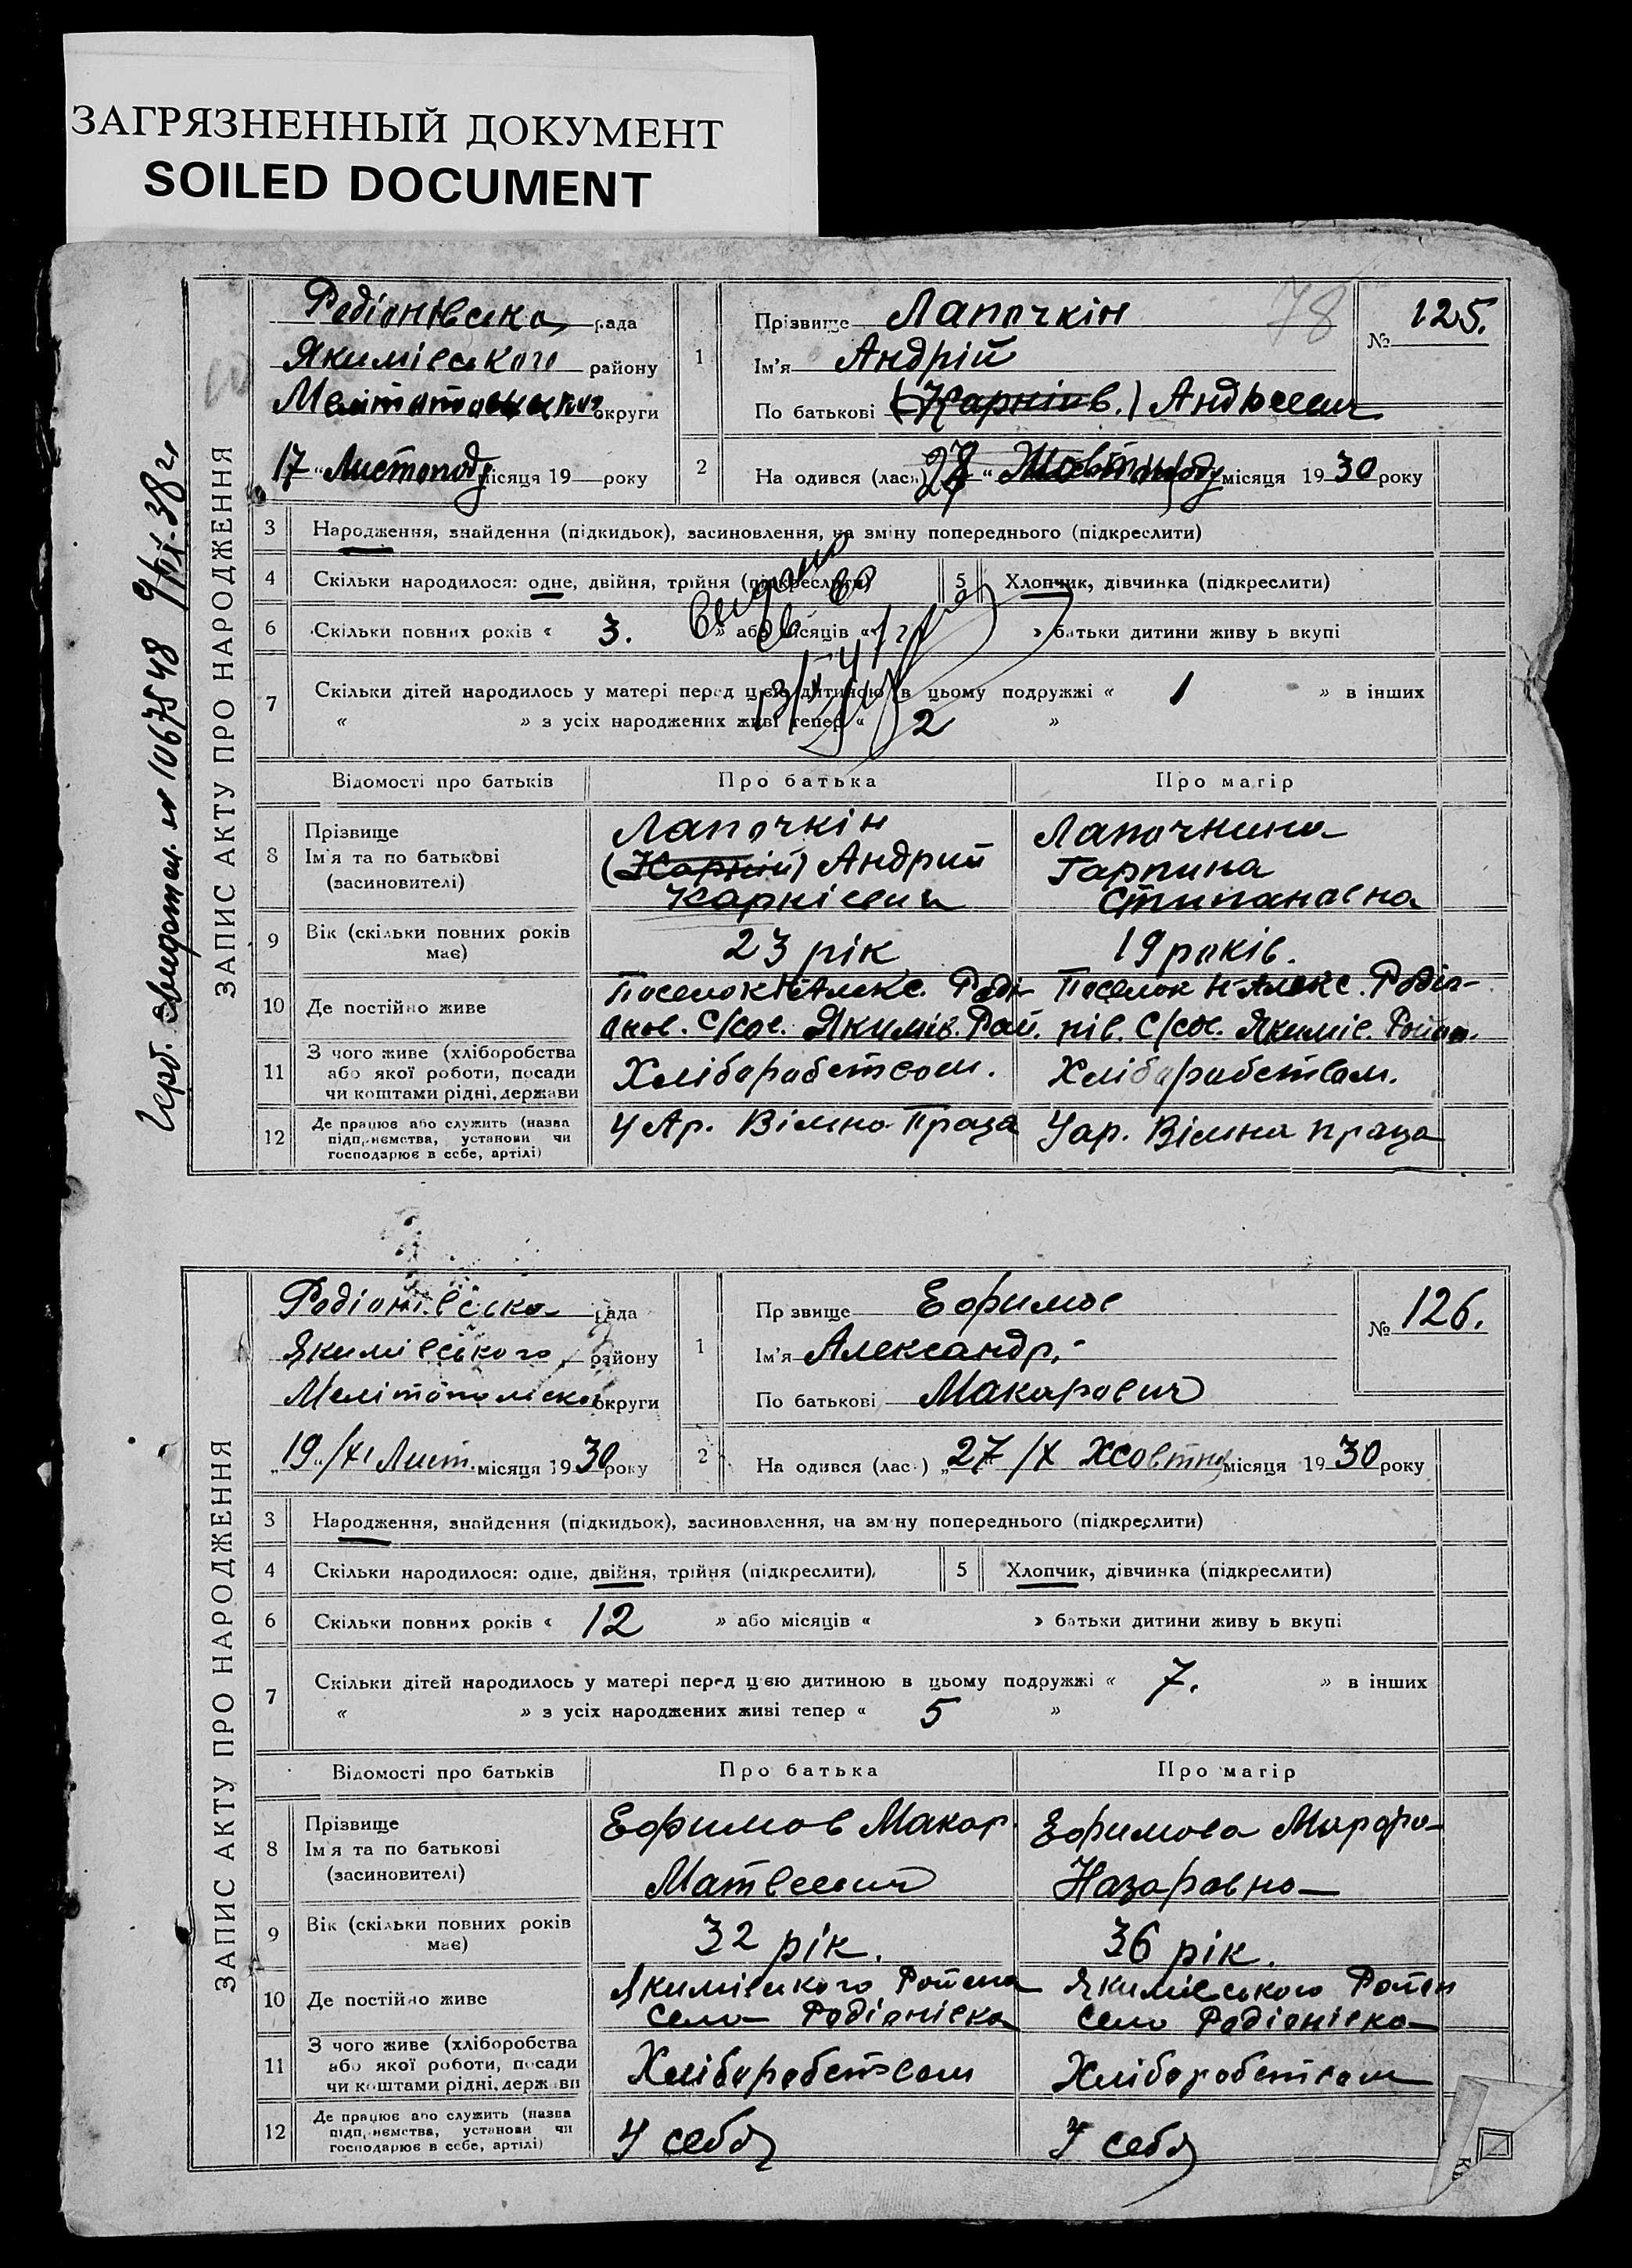 ЗАГРЯЗНЕННЫЙ ДОКУМЕНТ
SOILED DOCUMENT
Герб. свидотел. № 1067548 9/IX-38 г.
ЗАПИС АКТУ ПРО НАРОДЖЕННЯ
Родіонівська рада
Якимівського району
округи
17 " Листопаду місяця 19 року
1
Прізвище Лапочкін
Ім'я Андрій
По батькові (Карніїв.) Андрєевич
78
№ 125.
2
На одився (лась) місяця 1930 року
3 Народження, знайдення (підкидьок), засиновлення, на зміну попереднього (підкреслити)
4 Скільки народилося: одне, двійня, трійня (підкреслити)
5 Хлопчик, дівчинка (підкреслити)
6 Скільки повних років « 3. » або місяців « » батьки дитини живу ь вкупі
7 Скільки дітей народилось у матері перед цією дитиною в цьому подружжі « 1 » в інших
« » з усіх народжених живі тепер « 2 »
Відомості про батьків Про батька Про матір
8 Прізвище
Ім'я та по батькові
(засиновителі)
Лапочкін
(Карній) Андрий
Карнієвич
Лапочкина
Гарпина
Стипановна
9 Вік (скільки повних років має) 23 рік 19 років.
10 Де постійно живе
Поселок Н-Алекс. Роді-
онов. С/сов. Якимів. Рай.
Поселок Н-Алекс. Родіо-
нів. С/сов. Якимів. Район.
11 З чого живе (хліборобства
або якої роботи, посади
чи коштами рідні, держави
Хліборобством.
Хліборобством.
12 Де працює або служить (назва
підп,иємства, установи чи
господарює в себе, артілі)
У Ар. Вільна Праця
У ар. Вільна праця
ЗАПИС АКТУ ПРО НАРОДЖЕННЯ
Родіонівська рада
Якимівського району
Мелітопольско округи
„19„/XI Лист. місяця 1930 року
1
Пр звище Ефимов
Ім'я Александр.
По батькові Макарович
№ 126.
2
На одився (лас ) „27" /X Жовтня місяця 1930 року
3 Народження, знайдення (підкидьок), засиновлення, на зм ну попереднього (підкреслити)
4 Скільки народилося: одне, двійня, трійня (підкреслити)
5 Хлопчик, дівчинка (підкреслити)
6 Скільки повних років « 12 » або місяців « » батьки дитини живу ь вкупі
7 Скільки дітей народилось у матері перед цією дитиною в цьому подружжі « 7. » в інших
« » з усіх народжених живі тепер « 5 »
Відомості про батьків Про батька Про матір
8 Прізвище
Ім'я та по батькові
(засиновителі)
Ефимов Макар
Матвеевич
Ефимова Марфа
Назаровна
9 Вік (скільки повних років має) 32 рік. 36 рік.
10 Де постійно живе
Якимівского Района
Село Родіонівка
Якимівського Район
Село Родіонівка
11 З чого живе (хліборобства
або якої роботи, посади
чи коштами рідні, держ ви
Хліборобством
Хліборобством
12 Де працює або служить (назва
підп,иємства, установи чи
господарює в себе, артілі)
У себя
У себя